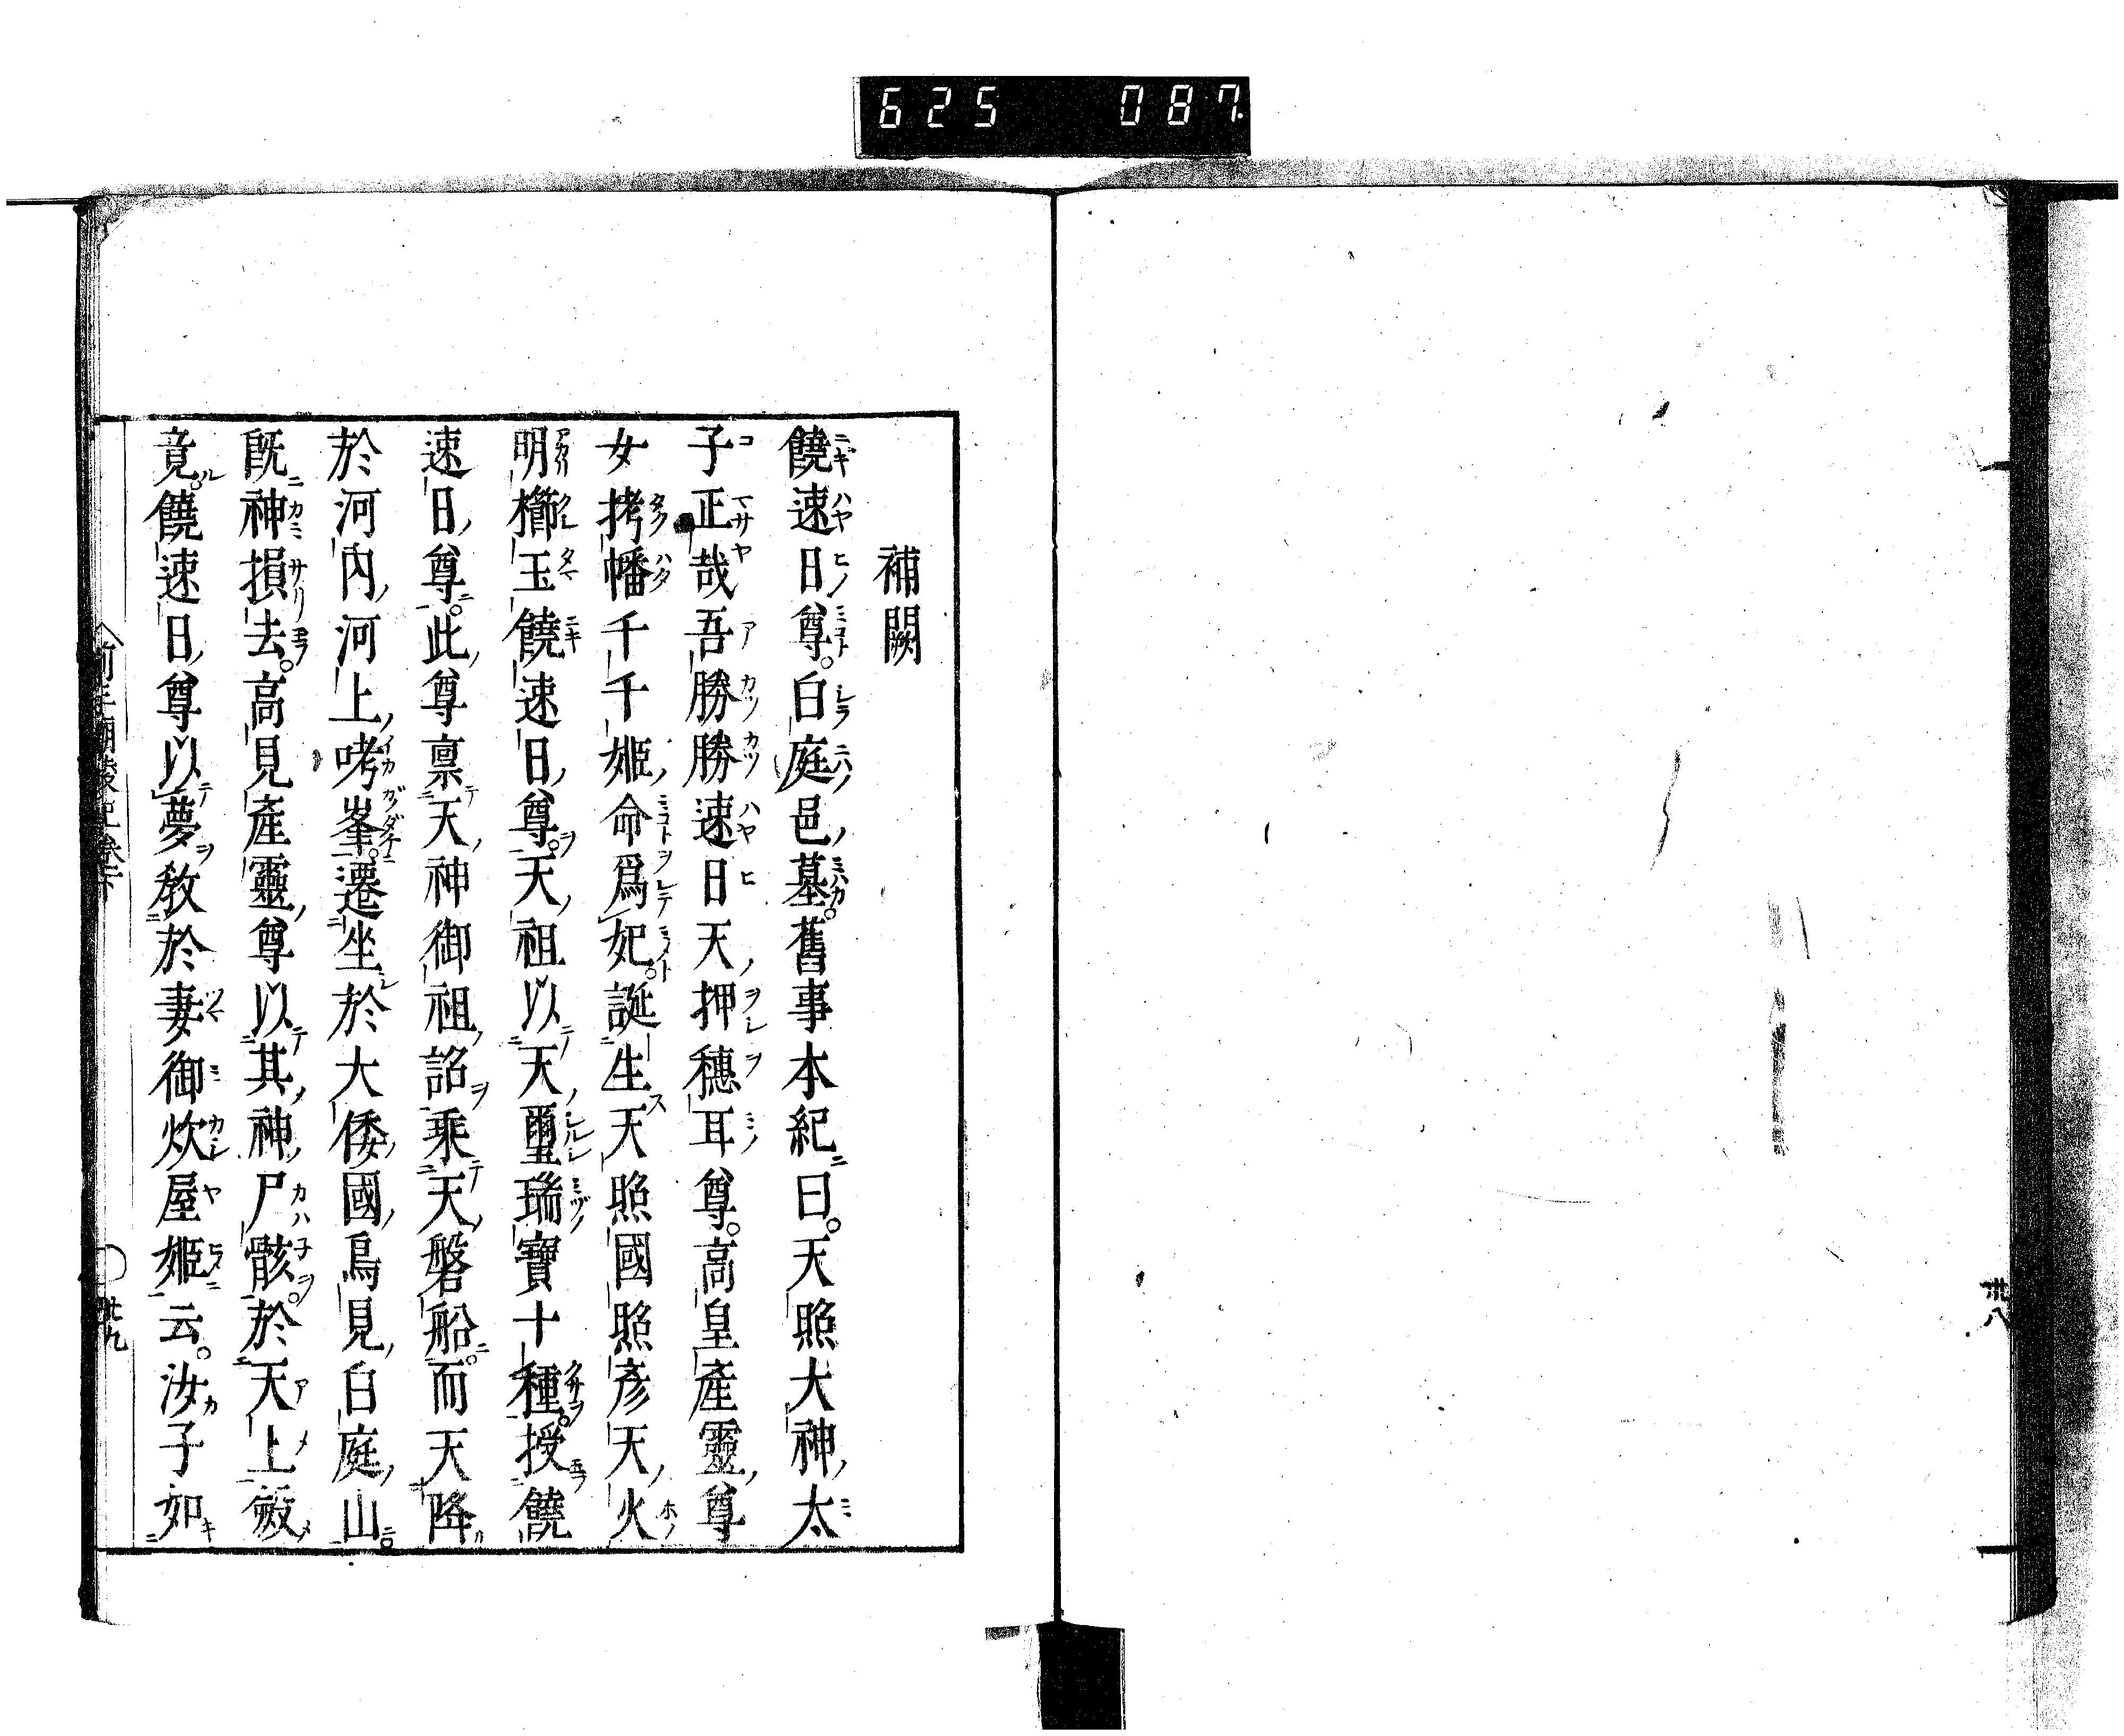 625 087
補闕
饒速日尊。白庭邑墓。舊事本紀曰。天照大神太
子正哉吾勝勝速日天押穗耳尊。高皇產靈尊
女拷幡千千姬命爲妃。誕生天照國照彥天火
明櫛玉饒速日尊。天祖以天璽瑞寶十種。授饒
速日尊。此尊禀天神御祖詔乘天磐船。而天降
於河內河上哮峯。遷坐於大倭國鳥見白庭山。
旣神損去。高見產靈尊以其神尸骸。於天上斂
竟。饒速日尊以夢敎於妻御炊屋姬云。汝子如
前王廟陵記卷下
卅九
卅八